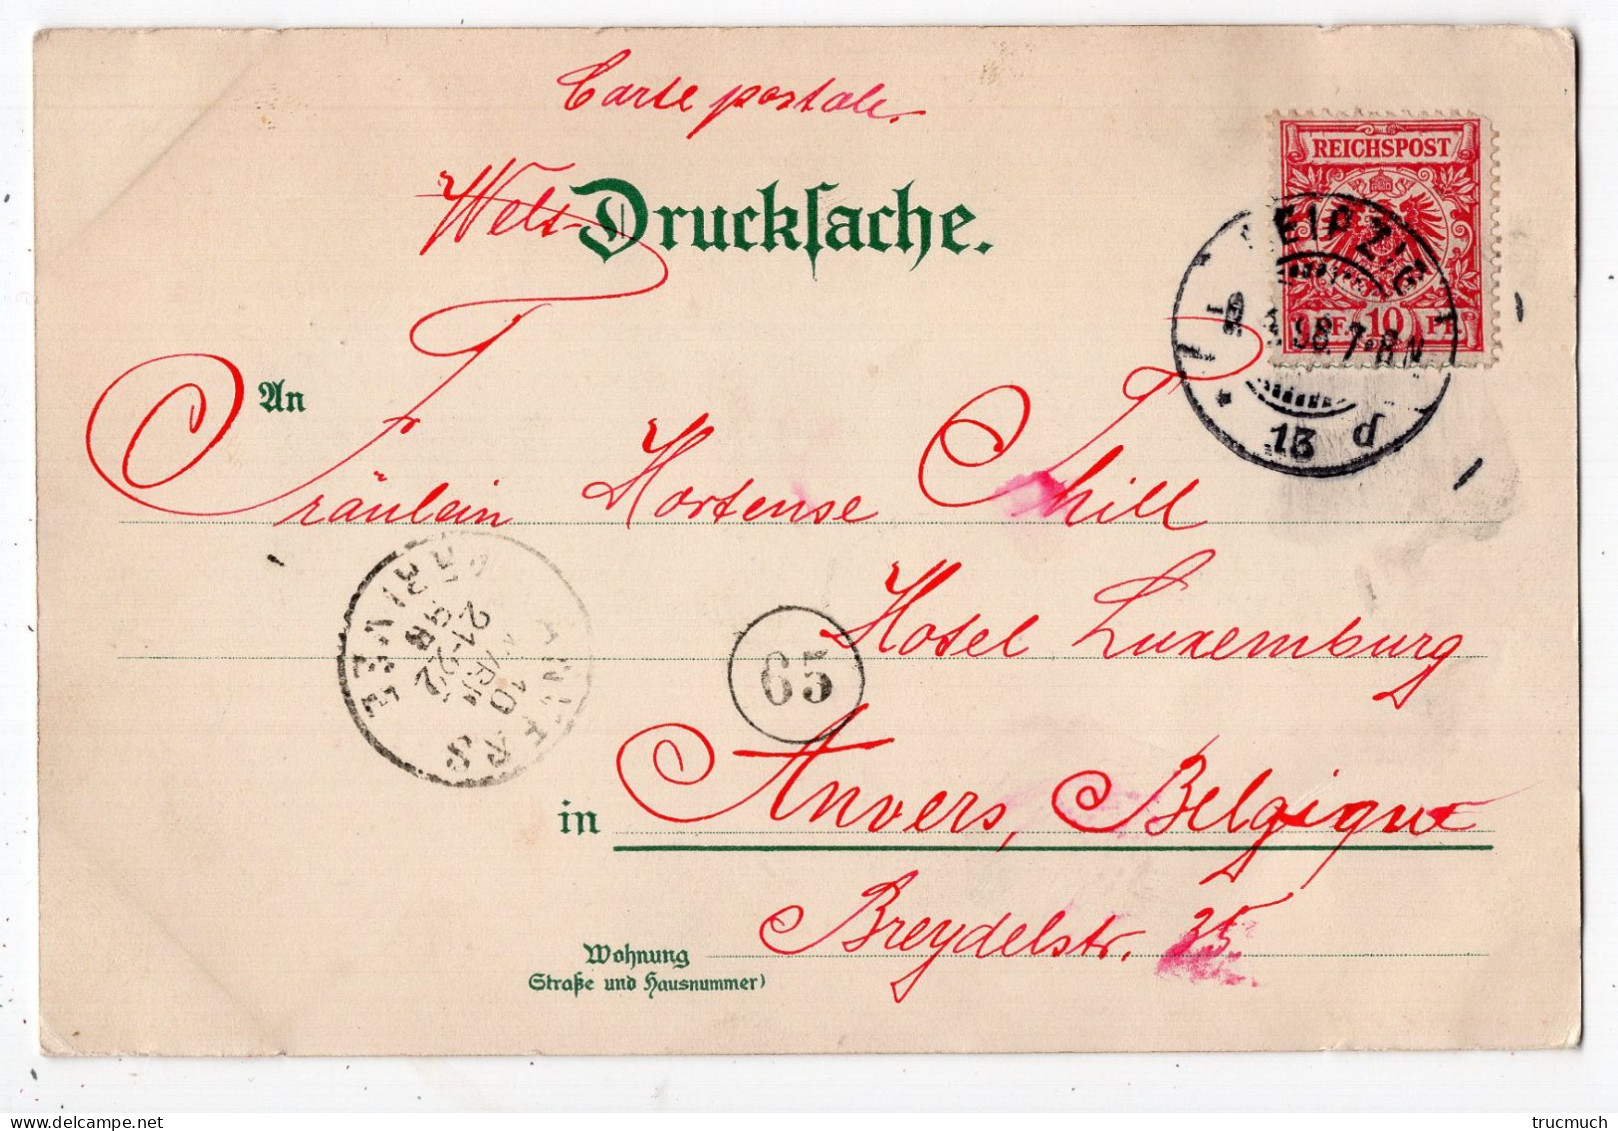 Carte postale.
Welt-Drucksache.
REICHSPOST
10 PF 10 PF
LEIPZIG
98.7-8N
13 d
An
Fräulein Hortense Thill
Hotel Luxemburg
65
ANVERS
10
21-22
98
in Anvers, Belgique
Breydelstr. 35
Wohnung
(Straße und Hausnummer)
trucmuch